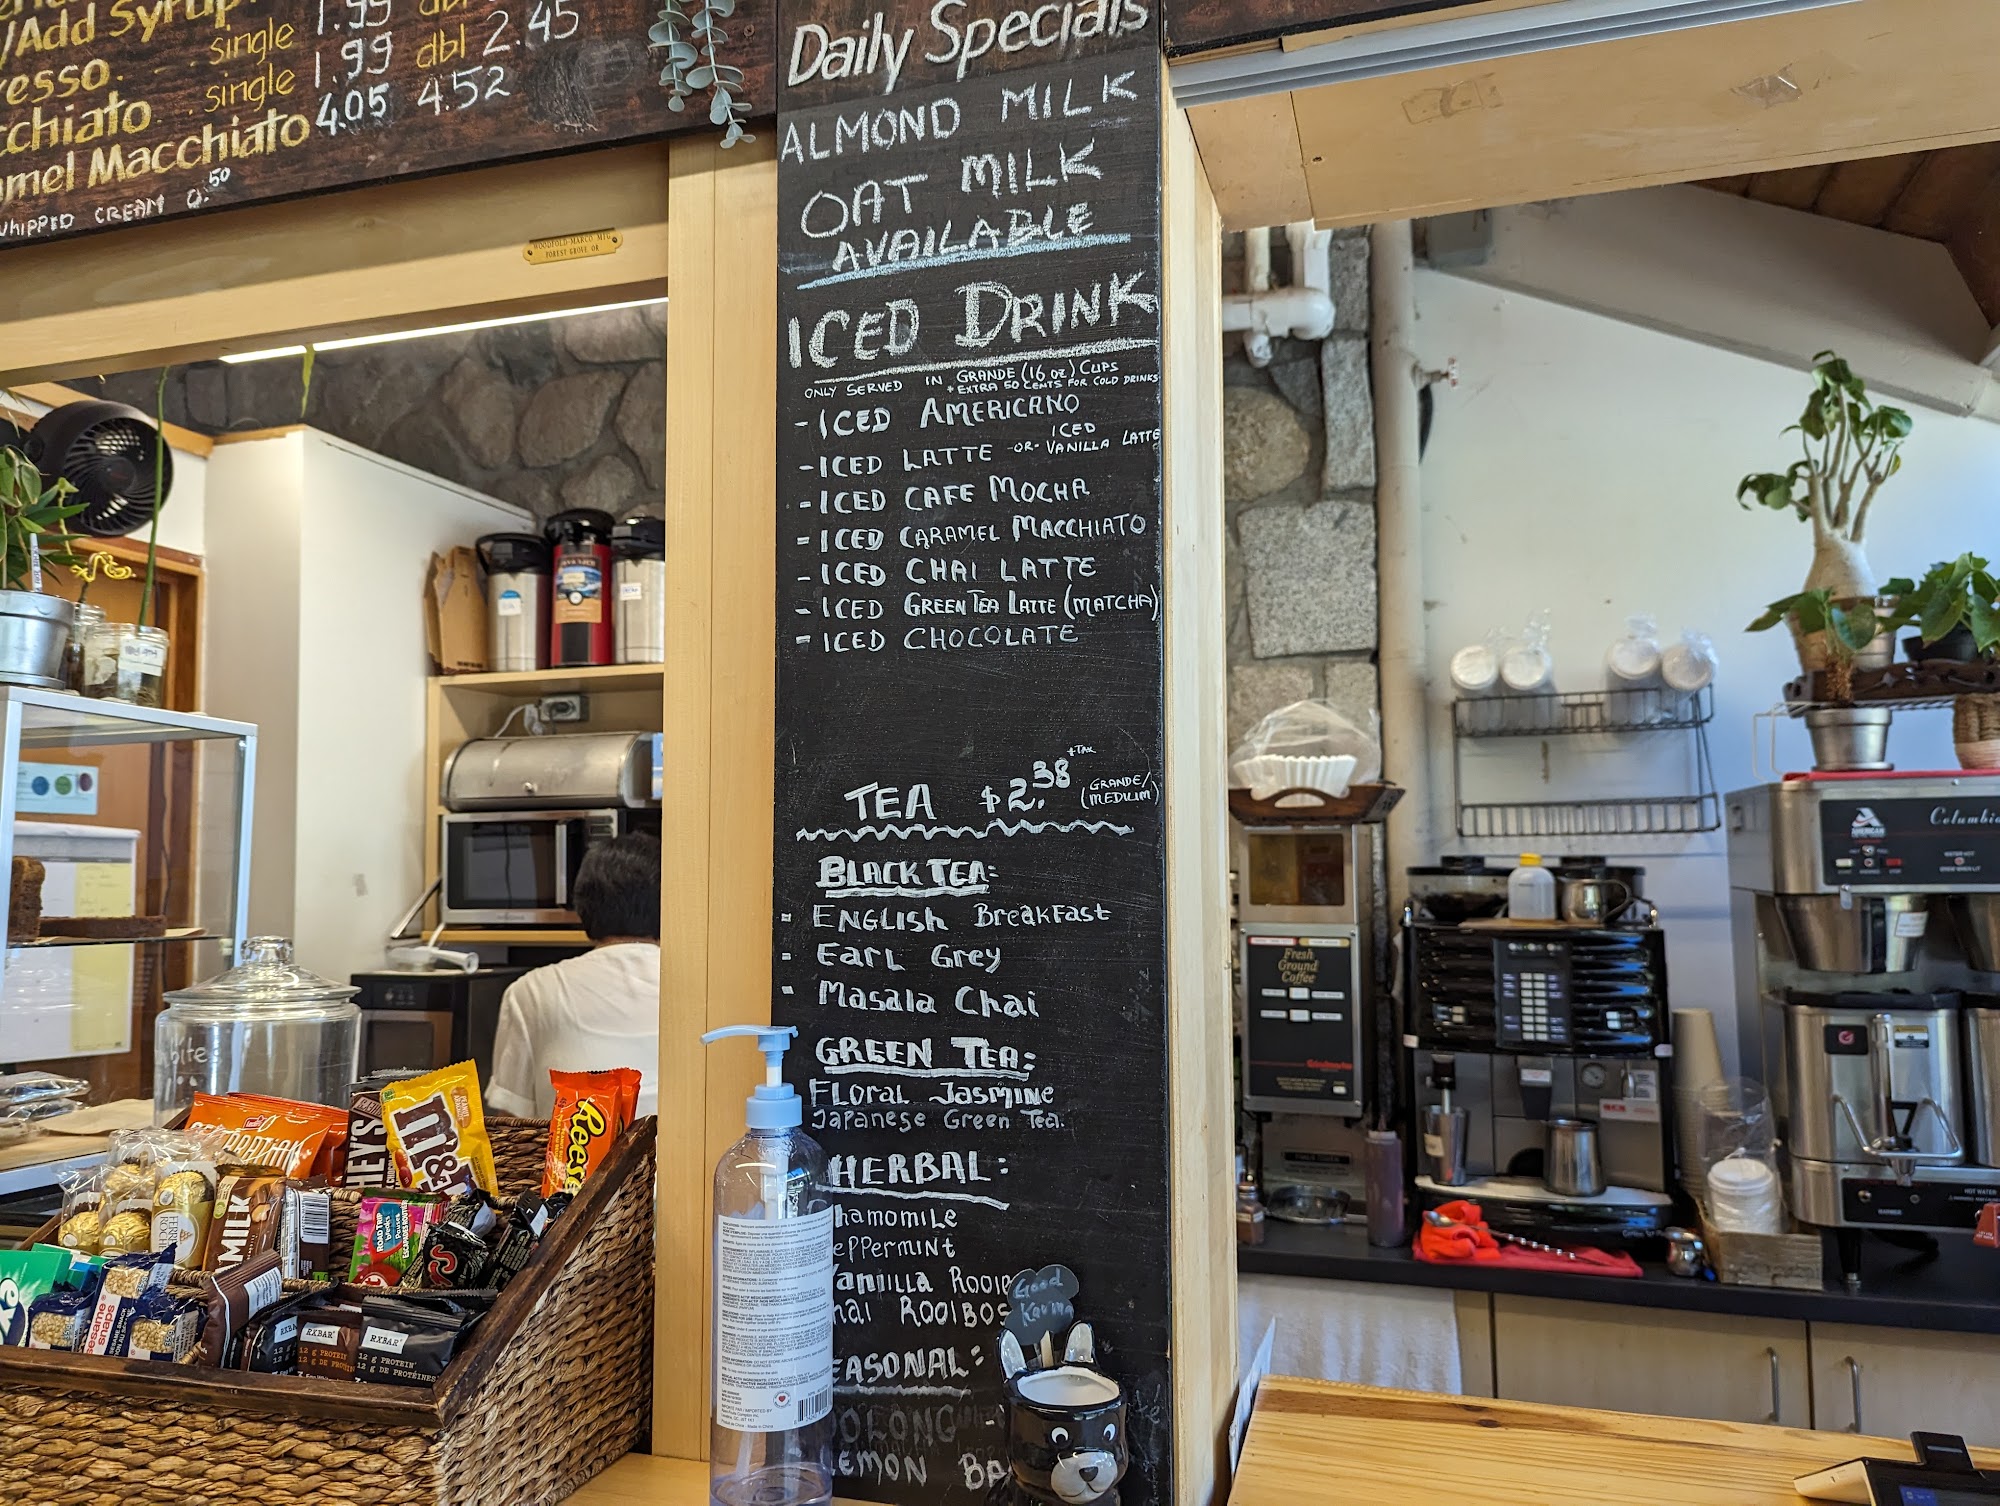 /Add Syrup
single 1.99 dbl
single 1.99 dbl 2.45
Macchiato 4.05 4.52
WHIPPED CREAM 0.50
WOODFOLD-MARCO MFG
FOREST GROVE OR
Daily Specials
ALMOND MILK
OAT MILK
AVAILABLE
ICED DRINK
ONLY SERVED IN GRANDE (16 oz) CUPS
+ EXTRA 50 CENTS FOR COLD DRINKS
- ICED AMERICANO
- ICED LATTE -OR- ICED VANILLA LATTE
- ICED CAFE MOCHA
- ICED CARAMEL MACCHIATO
- ICED CHAI LATTE
- ICED GREEN TEA LATTE (MATCHA)
- ICED CHOCOLATE
TEA $2.38 +TAX GRANDE/
(MEDIUM)
BLACK TEA:
- ENGLISH BREAKFAST
- EARL GREY
- MASALA CHAI
GREEN TEA:
FLORAL JASMINE
Japanese Green Tea.
HERBAL:
hamomile
eppermint
anilla Rooib
hai ROOIBOS
EASONAL:
OOLONG
EMON BA
Good
Karma
Fresh
Ground
Coffee
Columbia
AMERICAN
HOT WATER
HEY'S
m&m
Reese
FERRERO
ROCHE
MILK
ROAD TRIP
sesame
snaps
RXBAR
12 g PROTEIN
RXBAR
12 g PROTEIN
12 g DE PROTÉINES
RXBAR
bites